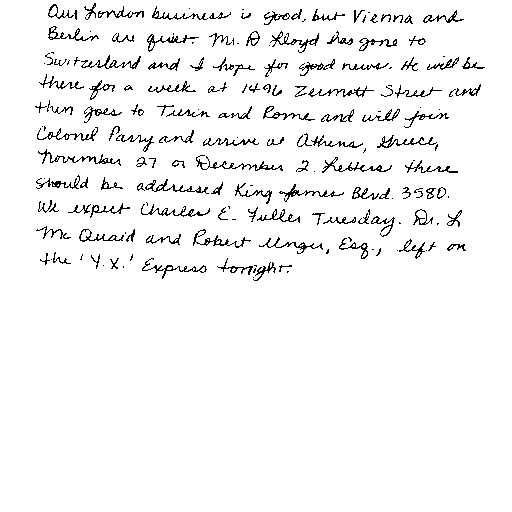 Our London business is good, but Vienna and
Berlin are quiet. Mr. D Lloyd has gone to
Switzerland and I hope for good news. He will be
there for a week at 1496 Zermott Street and
then goes to Turin and Rome and will join
Colonel Parry and arrive at Athens, Greece,
November 27 or December 2. Letters there
should be addressed King James Blvd. 3580.
We expect Charles E. Fuller Tuesday. Dr. L
Mc Quaid and Robert Unger, Esq., left on
the 'Y.X.' Express tonight.